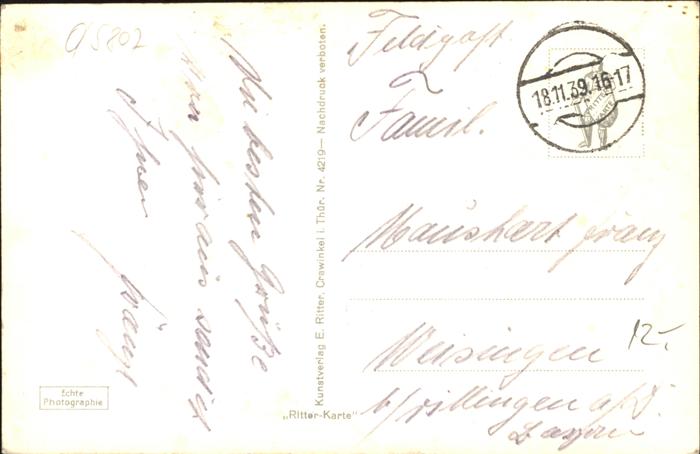 95802
Die besten Grüße
von hier aus sendet
Ihnen
Feldpost
Famil.
Manshart Franz
Weisingen
b/ Dillingen a/D.
Bayern
12,-
18.11.39.16-17
RITTER
KARTE
Kunstverlag E. Ritter, Crawinkel i. Thür. Nr. 4219 — Nachdruck verboten.
„Ritter-Karte"
Echte
Photographie